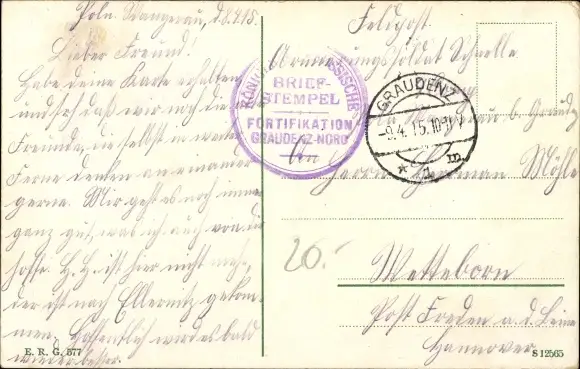 Poln. Wangerau, d. 8.4.15.
Lieber Freund!
Habe deine Karte erhalten
und sah daß wir noch die
Freunde, die selbst in weiter
Ferne denken an einander
gerne. Mir geht es noch immer
ganz gut, was ich auch von dir
hoffe. H. H. ist hier nicht mehr,
der ist nach Ellernitz gekom-
men. Hoffentlich wird es bald
wieder besser.
E. R. G. 577
Feldpost.
Armierungssoldat Schnelle
b. Graudz
KÖNIGL. PREUSSISCHE
BRIEF-
STEMPEL
FORTIFIKATION
GRAUDENZ-NORD
GRAUDENZ
-9.4.15.10-11V
* 1 m
An
Herrn Herman Möhle
20.-
Wetteborn
Post Freden a. d. Leine
Hannover
S 12565